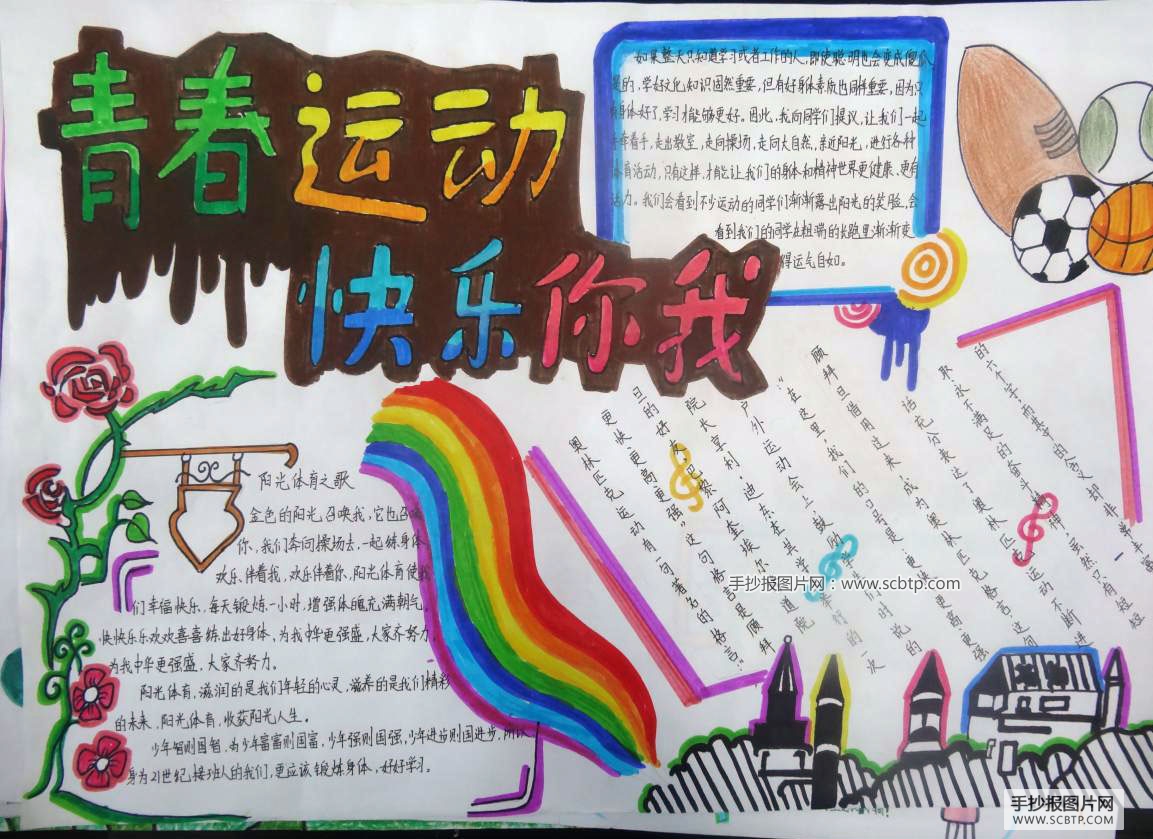 青春运动
快乐你我
如果整天只知道学习或者工作的人,即使聪明也会变成傻瓜
是的,学好文化知识固然重要,但有好身体素质也同样重要,因为只
身体好了,学习才能够更好。因此,我向同学们提议,让我们一起
手牵着手,走出教室,走向操场,走向大自然,亲近阳光,进行各种
体育活动,只有这样,才能让我们的身体和精神世界更健康、更有
活力。我们会看到不少运动的同学们渐渐露出阳光的笑脸,会
看到我们的同学在粗喘的长跑里渐渐变
得运气自如。
阳光体育之歌
金色的阳光,召唤我,它也召唤
你,我们奔向操场去,一起练身体
欢乐伴着我,欢乐伴着你,阳光体育使我
们幸福快乐,每天锻炼一小时,增强体魄充满朝气。
快快乐乐欢欢喜喜练出好身体,为我中华更强盛,大家齐努力,
为我中华更强盛,大家齐努力。
阳光体育,滋润的是我们年轻的心灵,滋养的是我们精彩
的未来,阳光体育,收获阳光人生。
少年智则国智,少年富则国富,少年强则国强,少年进步则国进步,所以
身为21世纪接班人的我们,更应该锻炼身体,好好学习。
奥林匹克运动有一句著名的格言:“
更快更高更强”这句格言是顾拜
旦的好友巴黎阿奎埃尔修道院
院长享利·迪东在其学
户外运动会上鼓励学生们时说的
“在这里,我们的口号是:更快更高更强
顾拜旦借用过来成为奥林匹克格言这句
话充分表达了奥林匹克运动不断进
取永不满足的奋斗精神虽然只有短短
的六个字,而其中的含义却非
手抄报图片网:www.scbtp.com
手抄报图片网
WWW.SCBTP.COM